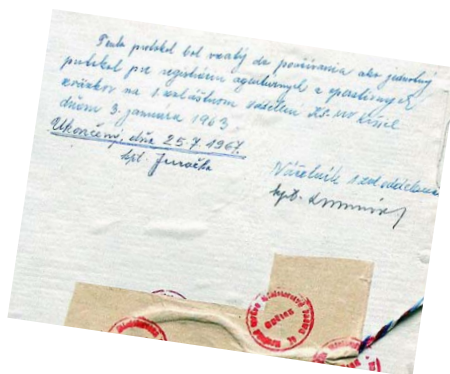 Tento protokol bol vzatý do používania ako jednotný
protokol pre registráciu agentúrnych a operatívnych
zväzkov na 1. zvláštnom oddelení KS-MV Košice
dňom 3. januára 1963.
Ukončený dňa 25.7.1967.
kpt. Juračka
Náčelník 1. zvl. oddelenia
kpt.